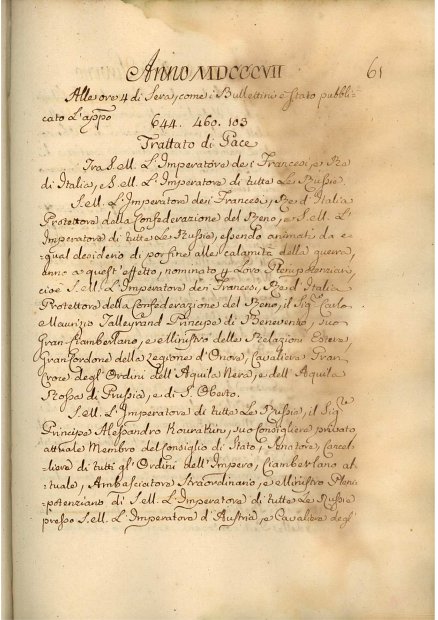 Anno MDCCCVII
61
Alle ore 4 di Sera, come i Bullettini è stato pubbli-
cato L'appo
644. 460. 103
Trattato di Pace
Tra S. M. L'Imperatore dei Francesi, e Re
di Italia, e S. M. L'Imperatore di tutte Le Russie.
S. M. L'Imperatore dei Francesi, Re d'Italia
Protettore della Confederazione del Reno, e S. M. L'
Imperatore di tutte Le Russie, essendo animati da e-
qual desiderio di por fine alle calamita della guerra,
anno a quest'effetto, nominato Loro Plenipotenziari,
cioe S. M. L'Imperatore dei Francesi, Re d'Italia
Protettore della Confederazione del Reno, il Sig.r Carlo
Maurizio Talleyrand Principe di Benevenko, suo
Gran Ciamberlano, e Ministro delle Relazioni Estere,
Gran Cordone della Legione d'Onore, Cavaliere Gran
Croce degl'Ordini dell'Aquila Nera, e dell'Aquila
Rossa di Prussia, e di S. Oberto.
S. M. L'Imperatore di tutte Le Russie, il Sig.re
Principe Alessandro Kourakin, suo Consigliere privato
attuale Membro del Consiglio di Stato, Senatore, Cancel-
liere di tutti gl'Ordini dell'Impero, Ciamberlano at-
tuale, Ambasciatore Straordinario, e Ministro Pleni-
potenziario di S. M. L'Imperatore di tutte Le Russie
presso S. M. L'Imperatore d'Austria, e Cavaliere degl'